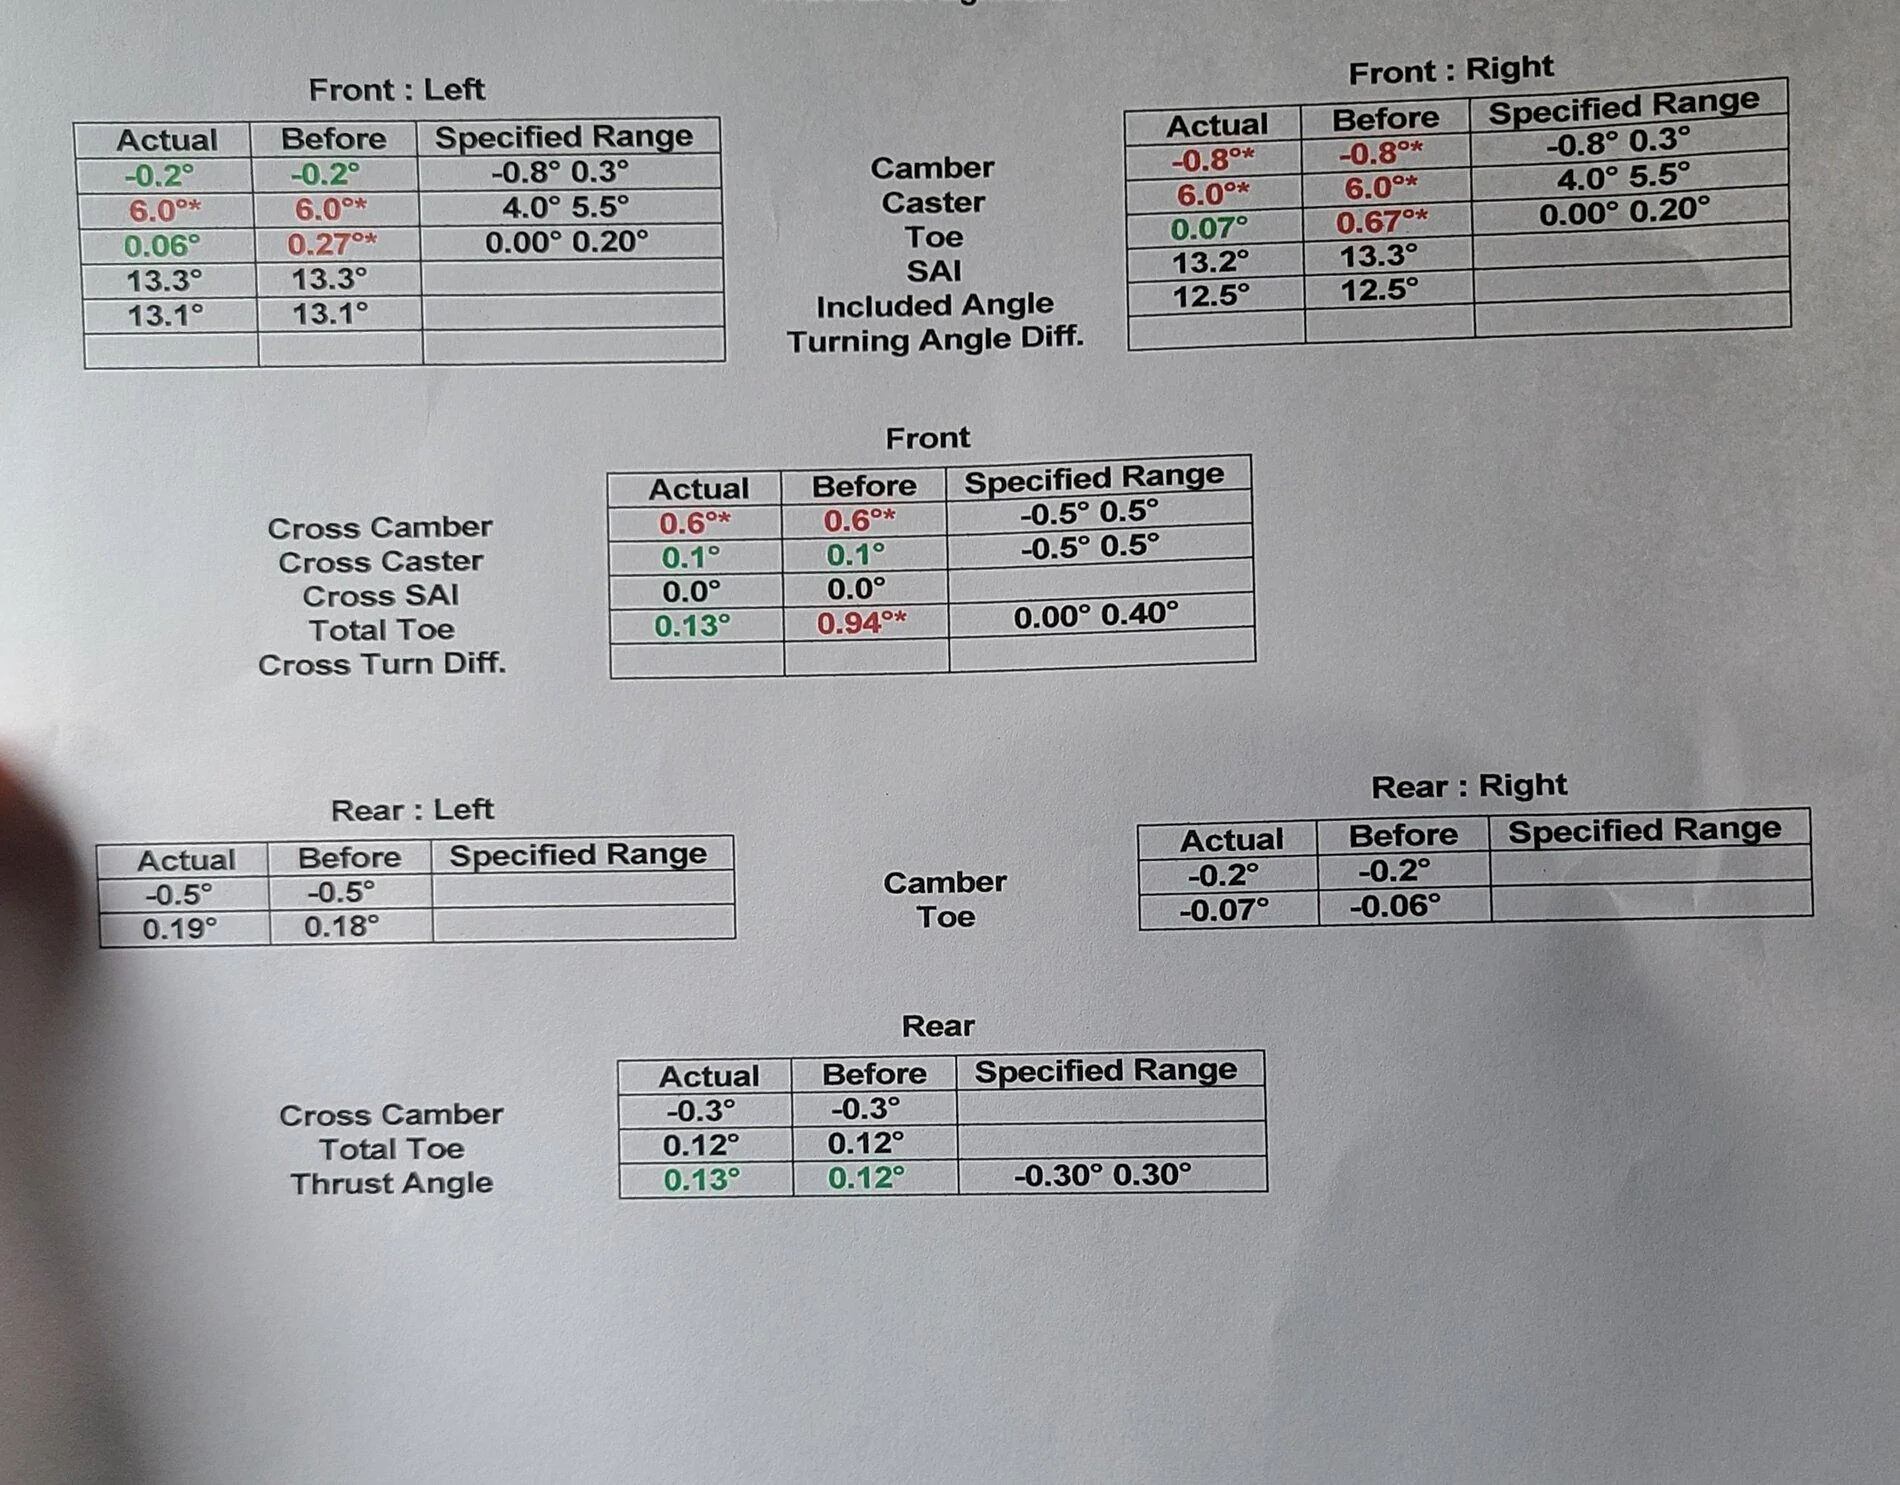 Front : Left
Actual Before Specified Range
-0.2° -0.2° -0.8° 0.3°
6.0°* 6.0°* 4.0° 5.5°
0.06° 0.27°* 0.00° 0.20°
13.3° 13.3°
13.1° 13.1°
Camber
Caster
Toe
SAI
Included Angle
Turning Angle Diff.
Front : Right
Actual Before Specified Range
-0.8°* -0.8°* -0.8° 0.3°
6.0°* 6.0°* 4.0° 5.5°
0.07° 0.67°* 0.00° 0.20°
13.2° 13.3°
12.5° 12.5°
Front
Actual Before Specified Range
Cross Camber 0.6°* 0.6°* -0.5° 0.5°
Cross Caster 0.1° 0.1° -0.5° 0.5°
Cross SAI 0.0° 0.0°
Total Toe 0.13° 0.94°* 0.00° 0.40°
Cross Turn Diff.
Rear : Left
Actual Before Specified Range
-0.5° -0.5°
0.19° 0.18°
Camber
Toe
Rear : Right
Actual Before Specified Range
-0.2° -0.2°
-0.07° -0.06°
Rear
Actual Before Specified Range
Cross Camber -0.3° -0.3°
Total Toe 0.12° 0.12°
Thrust Angle 0.13° 0.12° -0.30° 0.30°